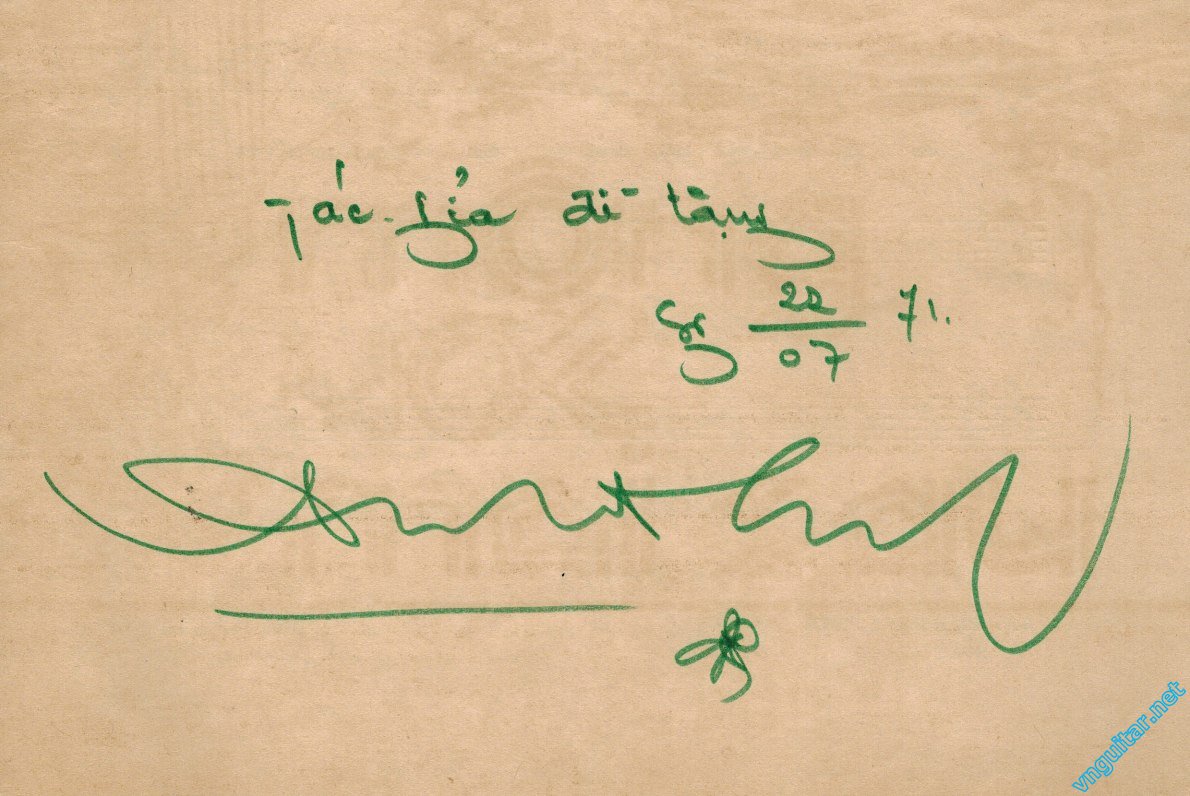 Tác-giả đề tặng
Sg 22/07 71.
vnguitar.net